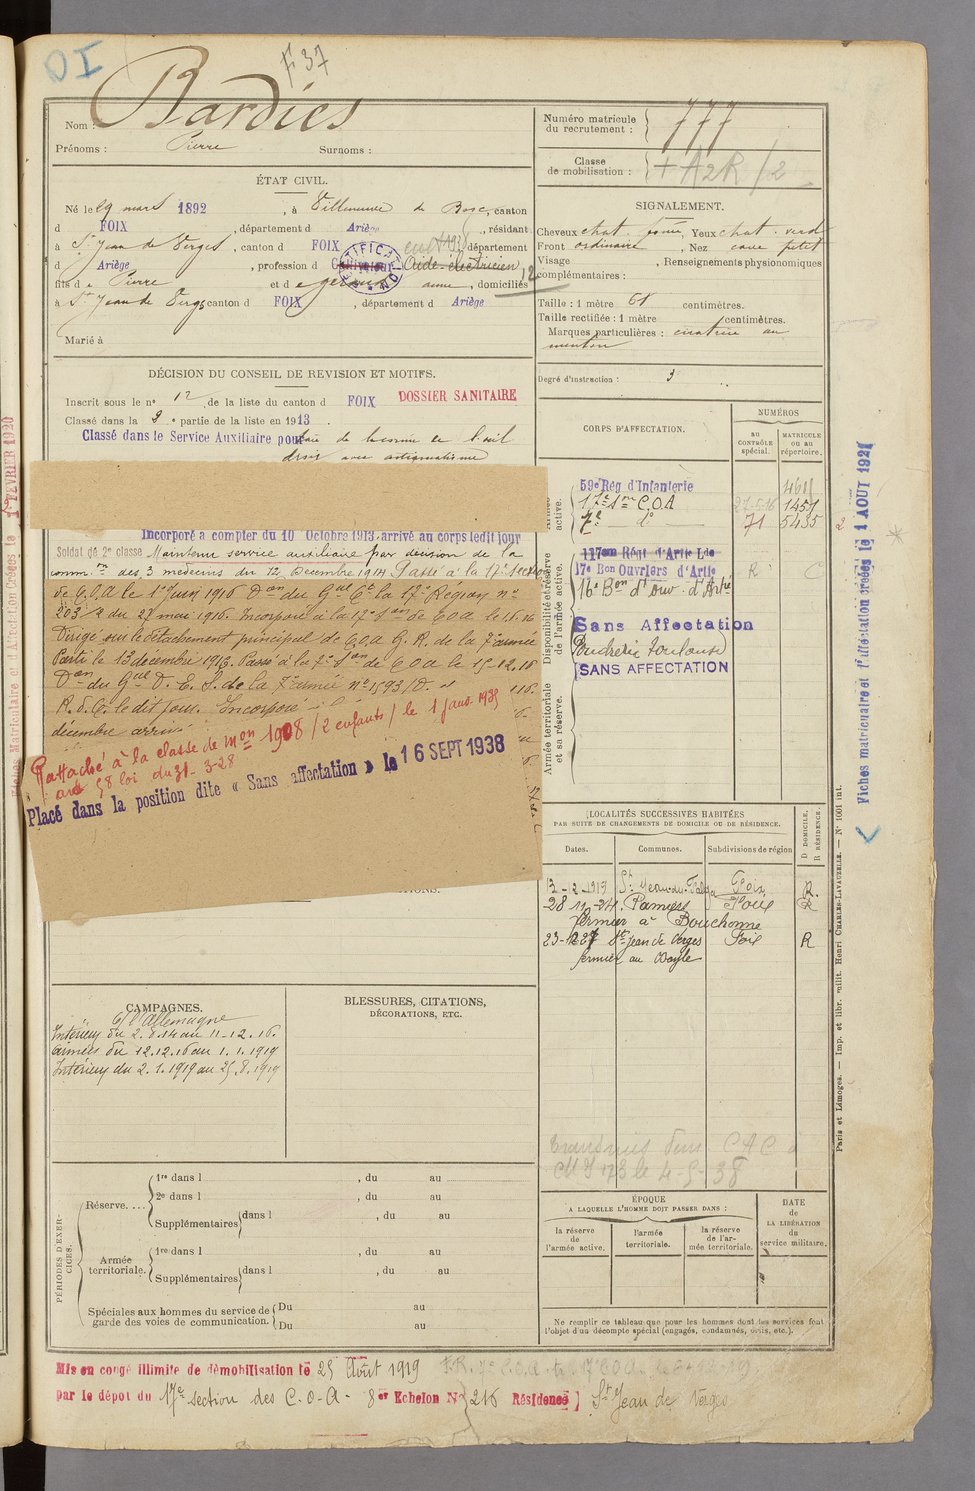 OI
F 37
Nom : Bardies
Prénoms : Pierre Surnoms :
Numéro matricule du recrutement : 777
Classe de mobilisation :
ÉTAT CIVIL.
Né le 29 mars 1892, à Villeneuve du Bosc, canton
d FOIX, département d Ariège, résidant
à St Jean de Verges, canton d FOIX, département
d Ariège, profession d Cultivateur Aide-électricien
fils de Pierre et de anne, domiciliés
à St Jean de Verges canton d FOIX, département d Ariège
Marié à
SIGNALEMENT.
Cheveux chat. Yeux chat. verd
Front ordinaire, Nez cave petit
Visage, Renseignements physionomiques
complémentaires :
Taille : 1 mètre 61 centimètres.
Taille rectifiée : 1 mètre centimètres.
Marques particulières : cicatrice au
menton
Degré d'instruction : 3
DÉCISION DU CONSEIL DE REVISION ET MOTIFS.
Inscrit sous le n° 12 de la liste du canton d FOIX
DOSSIER SANITAIRE
Classé dans la 2e partie de la liste en 1913.
Classé dans le Service Auxiliaire pour taie de l'œil
droit avec astigmatisme
Incorporé à compter du 10 Octobre 1913. arrivé au corps ledit jour
Soldat de 2e classe Maintenu service auxiliaire par décision de la
comm.on des 3 médecins du 12 Décembre 1914. Passé à la 17e Section
de C.O.A le 1er Juin 1916 Don du Gal Ct la 17e Région n°
203 du 27 mai 1916. Incorporé à la 17e Son de COA le 1.6.16
Dirigé sur le détachement principal de COA G. R. de la 7e armée
Parti le 13 decembre 1916. Passé à la 7e Son de COA le 15-12.16
Don du Gal D. E. S. de la 7e armée n° 1593/D.
R. d. C. le dit jour. Incorporé
décembre arrivé
Rattaché à la classe de mon 1908 / 2 enfants / le 1 janv 1935
art 58 loi du 31-3-28
Placé dans la position dite « Sans affectation » le 16 SEPT 1938
CORPS D'AFFECTATION.
NUMÉROS
au CONTRÔLE spécial.
MATRICULE ou au répertoire.
active.
59e Rég d'Infanterie
17e Son C.O.A 1451
7e do 71 5435
Disponibilité et réserve de l'armée active.
117eme Régt d'Artie Lde
17e Bon Ouvriers d'Artie R
16e Bon d'Ouv. d'Artie
Sans Affectation
Poudrerie Toulouse
SANS AFFECTATION
Armée territoriale et sa réserve.
LOCALITÉS SUCCESSIVES HABITÉES
PAR SUITE DE CHANGEMENTS DE DOMICILE OU DE RÉSIDENCE.
Dates. Communes. Subdivisions de région D DOMICILE. R RÉSIDENCE.
12-2-1913 St Jean-du-Falga Foix R.
28 11-24. Pamiers Foix R
Fermier à Bouchonne
23-12 27 St Jean de Verges Foix R
fermier au Bayle
CAMPAGNES.
C/ l'Allemagne
Intérieur du 2.8.14 au 11-12.16.
Armées du 12.12.16 au 1.1.1919
Intérieur du 2.1.1919 au 25.8.1919
BLESSURES, CITATIONS,
DÉCORATIONS, ETC.
CM I 173 le 4-5-38
PÉRIODES D'EXERCICES.
Réserve....
1re dans l , du au
2e dans l , du au
Supplémentaires dans l , du au
Armée territoriale.
1re dans l , du au
Supplémentaires dans l , du au
Spéciales aux hommes du service de garde des voies de communication.
Du au
Du au
ÉPOQUE
A LAQUELLE L'HOMME DOIT PASSER DANS :
la réserve de l'armée active.
l'armée territoriale.
la réserve de l'armée territoriale.
DATE de LA LIBÉRATION du service militaire.
Ne remplir ce tableau que pour les hommes dont les services font
l'objet d'un décompte spécial (engagés, condamnés, omis, etc.).
Mis en congé illimité de démobilisation le 25 Août 1919
par le dépôt du 17e section des C.O.A - 8er Echelon N° 216 Résidence St Jean de Verges
Fiches matricule et d'affectation créées le 1 AOUT 1927
Paris et Limoges. — Imp. et libr. milit. Henri CHARLES-LAVAUZELLE. — N° 1001 int.